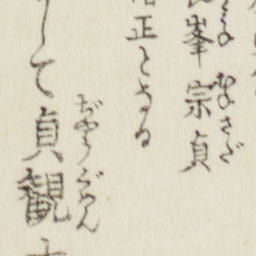 峯宗貞
みねむねさだ
正となる
して貞観
ぢやうぐわん